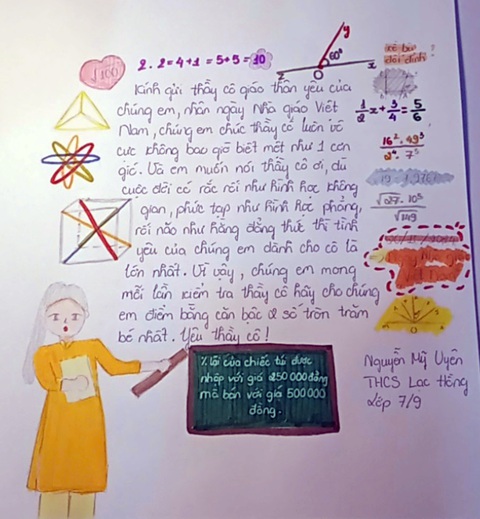 √100
2 . 2 = 4 + 1 = 5 + 5 = 10
y
60°
z O x
Kính gửi thầy cô giáo thân yêu của
chúng em, nhân ngày Nhà giáo Việt
Nam, chúng em chúc thầy cô luôn vô
cực không bao giờ biết mệt như 1 cơn
gió. Và em muốn nói thầy cô ơi, dù
cuộc đời có rắc rối như hình học không
gian, phức tạp như hình học phẳng,
rối não như hằng đẳng thức thì tình
yêu của chúng em dành cho cô là
lớn nhất. Vì vậy, chúng em mong
mỗi lần kiểm tra thầy cô hãy cho chúng
em điểm bằng căn bậc 2 số tròn trăm
bé nhất. Yêu thầy cô!
đối đỉnh
1/2 x + 3/4 = 5/6
16² . 49³
2⁴ . 7⁵
√27 . 10⁵
√149
% lãi của chiếc túi được
nhập với giá 250 000 đồng
mà bán với giá 500 000
đồng.
Nguyễn Mỹ Uyên
THCS Lạc Hồng
Lớp 7/9